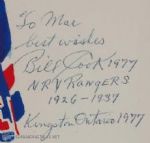 To Mac
best wishes
Bill Cook 1977
N.R.Y RANGERS
1926-1937
Kingston Ontario 1977